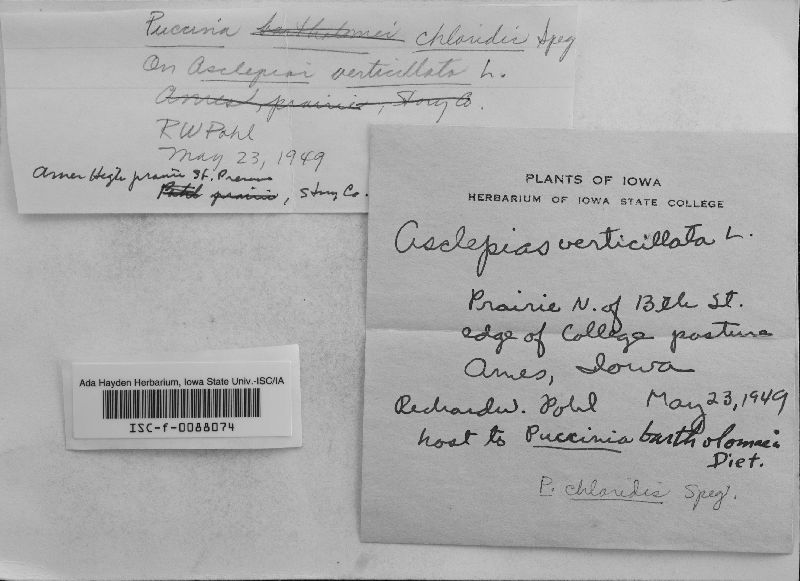 Puccinia bartholomei chloridis Speg
On Asclepias verticillata L.
Ames, prairie, Story Co.
RW Pohl
May 23, 1949
Ames High prairie St.
Pohl prairie, Story Co.
PLANTS OF IOWA
HERBARIUM OF IOWA STATE COLLEGE
Asclepias verticillata L.
Prairie N. of 13th St.
edge of College pasture
Ames, Iowa
Richard W. Pohl May 23, 1949
host to Puccinia bartholomaei
Diet.
P. chloridis Speg.
Ada Hayden Herbarium, Iowa State Univ.-ISC/IA
ISC-f-0088074